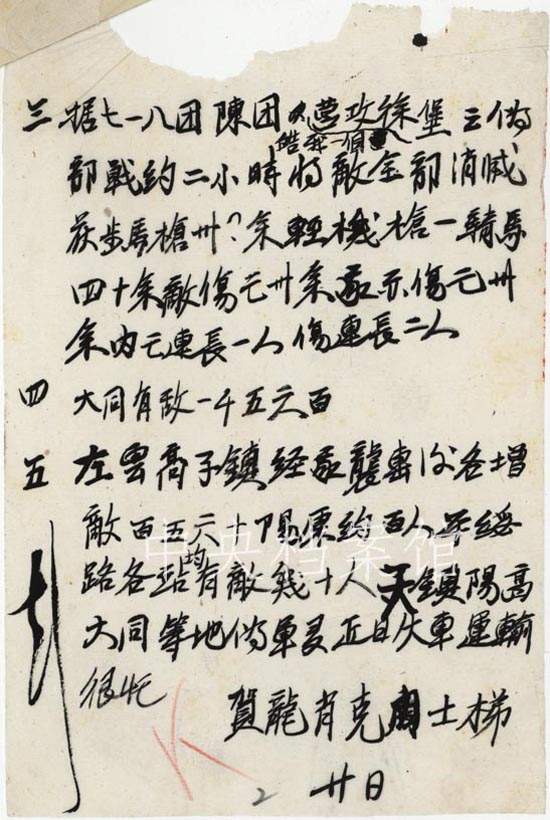 三 据七一八团陳团人营攻徐堡云偽
皓
部戰約二小時將敵全部消滅
获步馬槍卅?余輕機槍一騎馬
四十余敵傷亡卅余我亦傷亡卅
余内亡連長一人傷連長二人
四 大同有敌一千五六百
五 左雲高子鎮经我襲击后各增
敵百五六十阳原约百人平綏
路各站均有敵幾十人天鎮陽高
大同等地偽軍灵正日火車運輸
很忙
賀龍肖克周士梯
2 廿日
中央档案馆